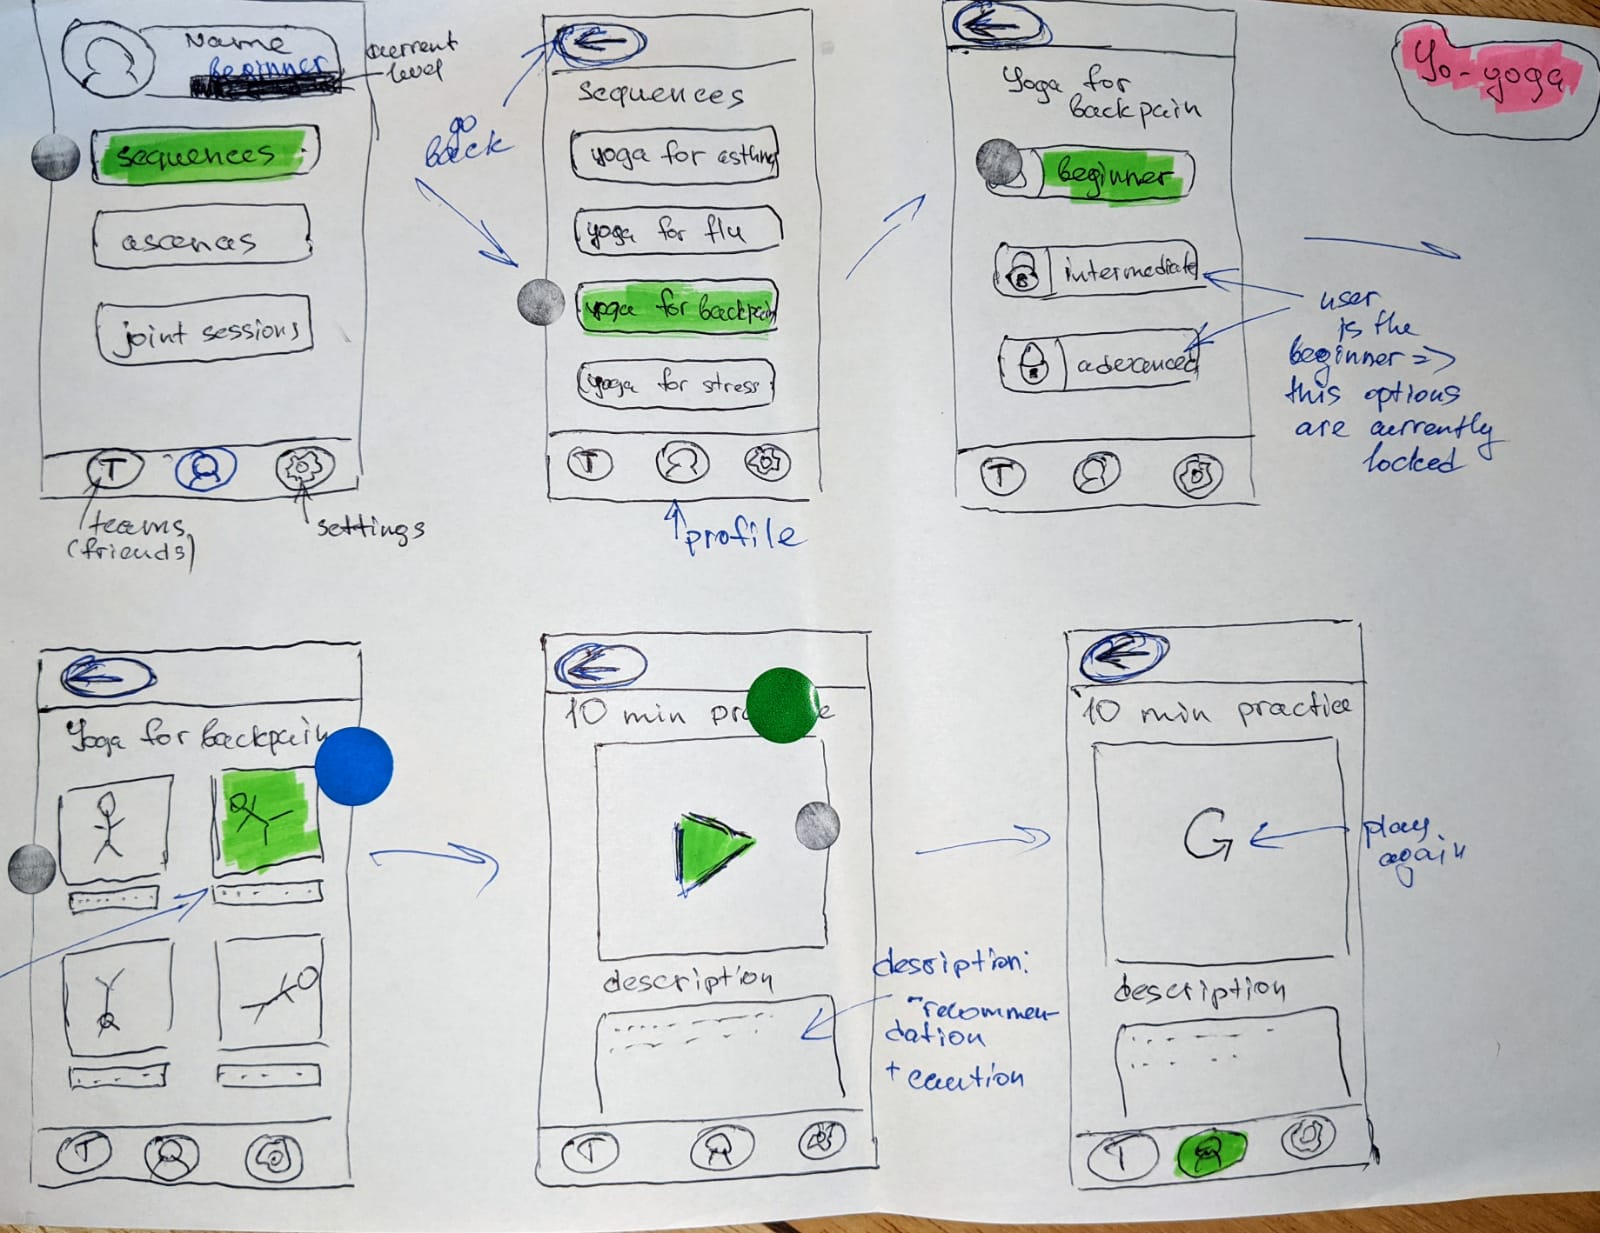 Name
beginner
current
level
sequences
ascenas
joint sessions
T
teams
(friends)
settings
go
back
sequences
yoga for asthma
yoga for flu
yoga for backpain
yoga for stress
T
profile
Yoga for
backpain
beginner
intermediate
adevanced
T
user
is the
beginner =>
this options
are currently
locked
Yo-yoga
Yoga for backpain
T
10 min pr
e
description
T
description:
recommen-
dation
+ caution
10 min practice
play
again
description
T